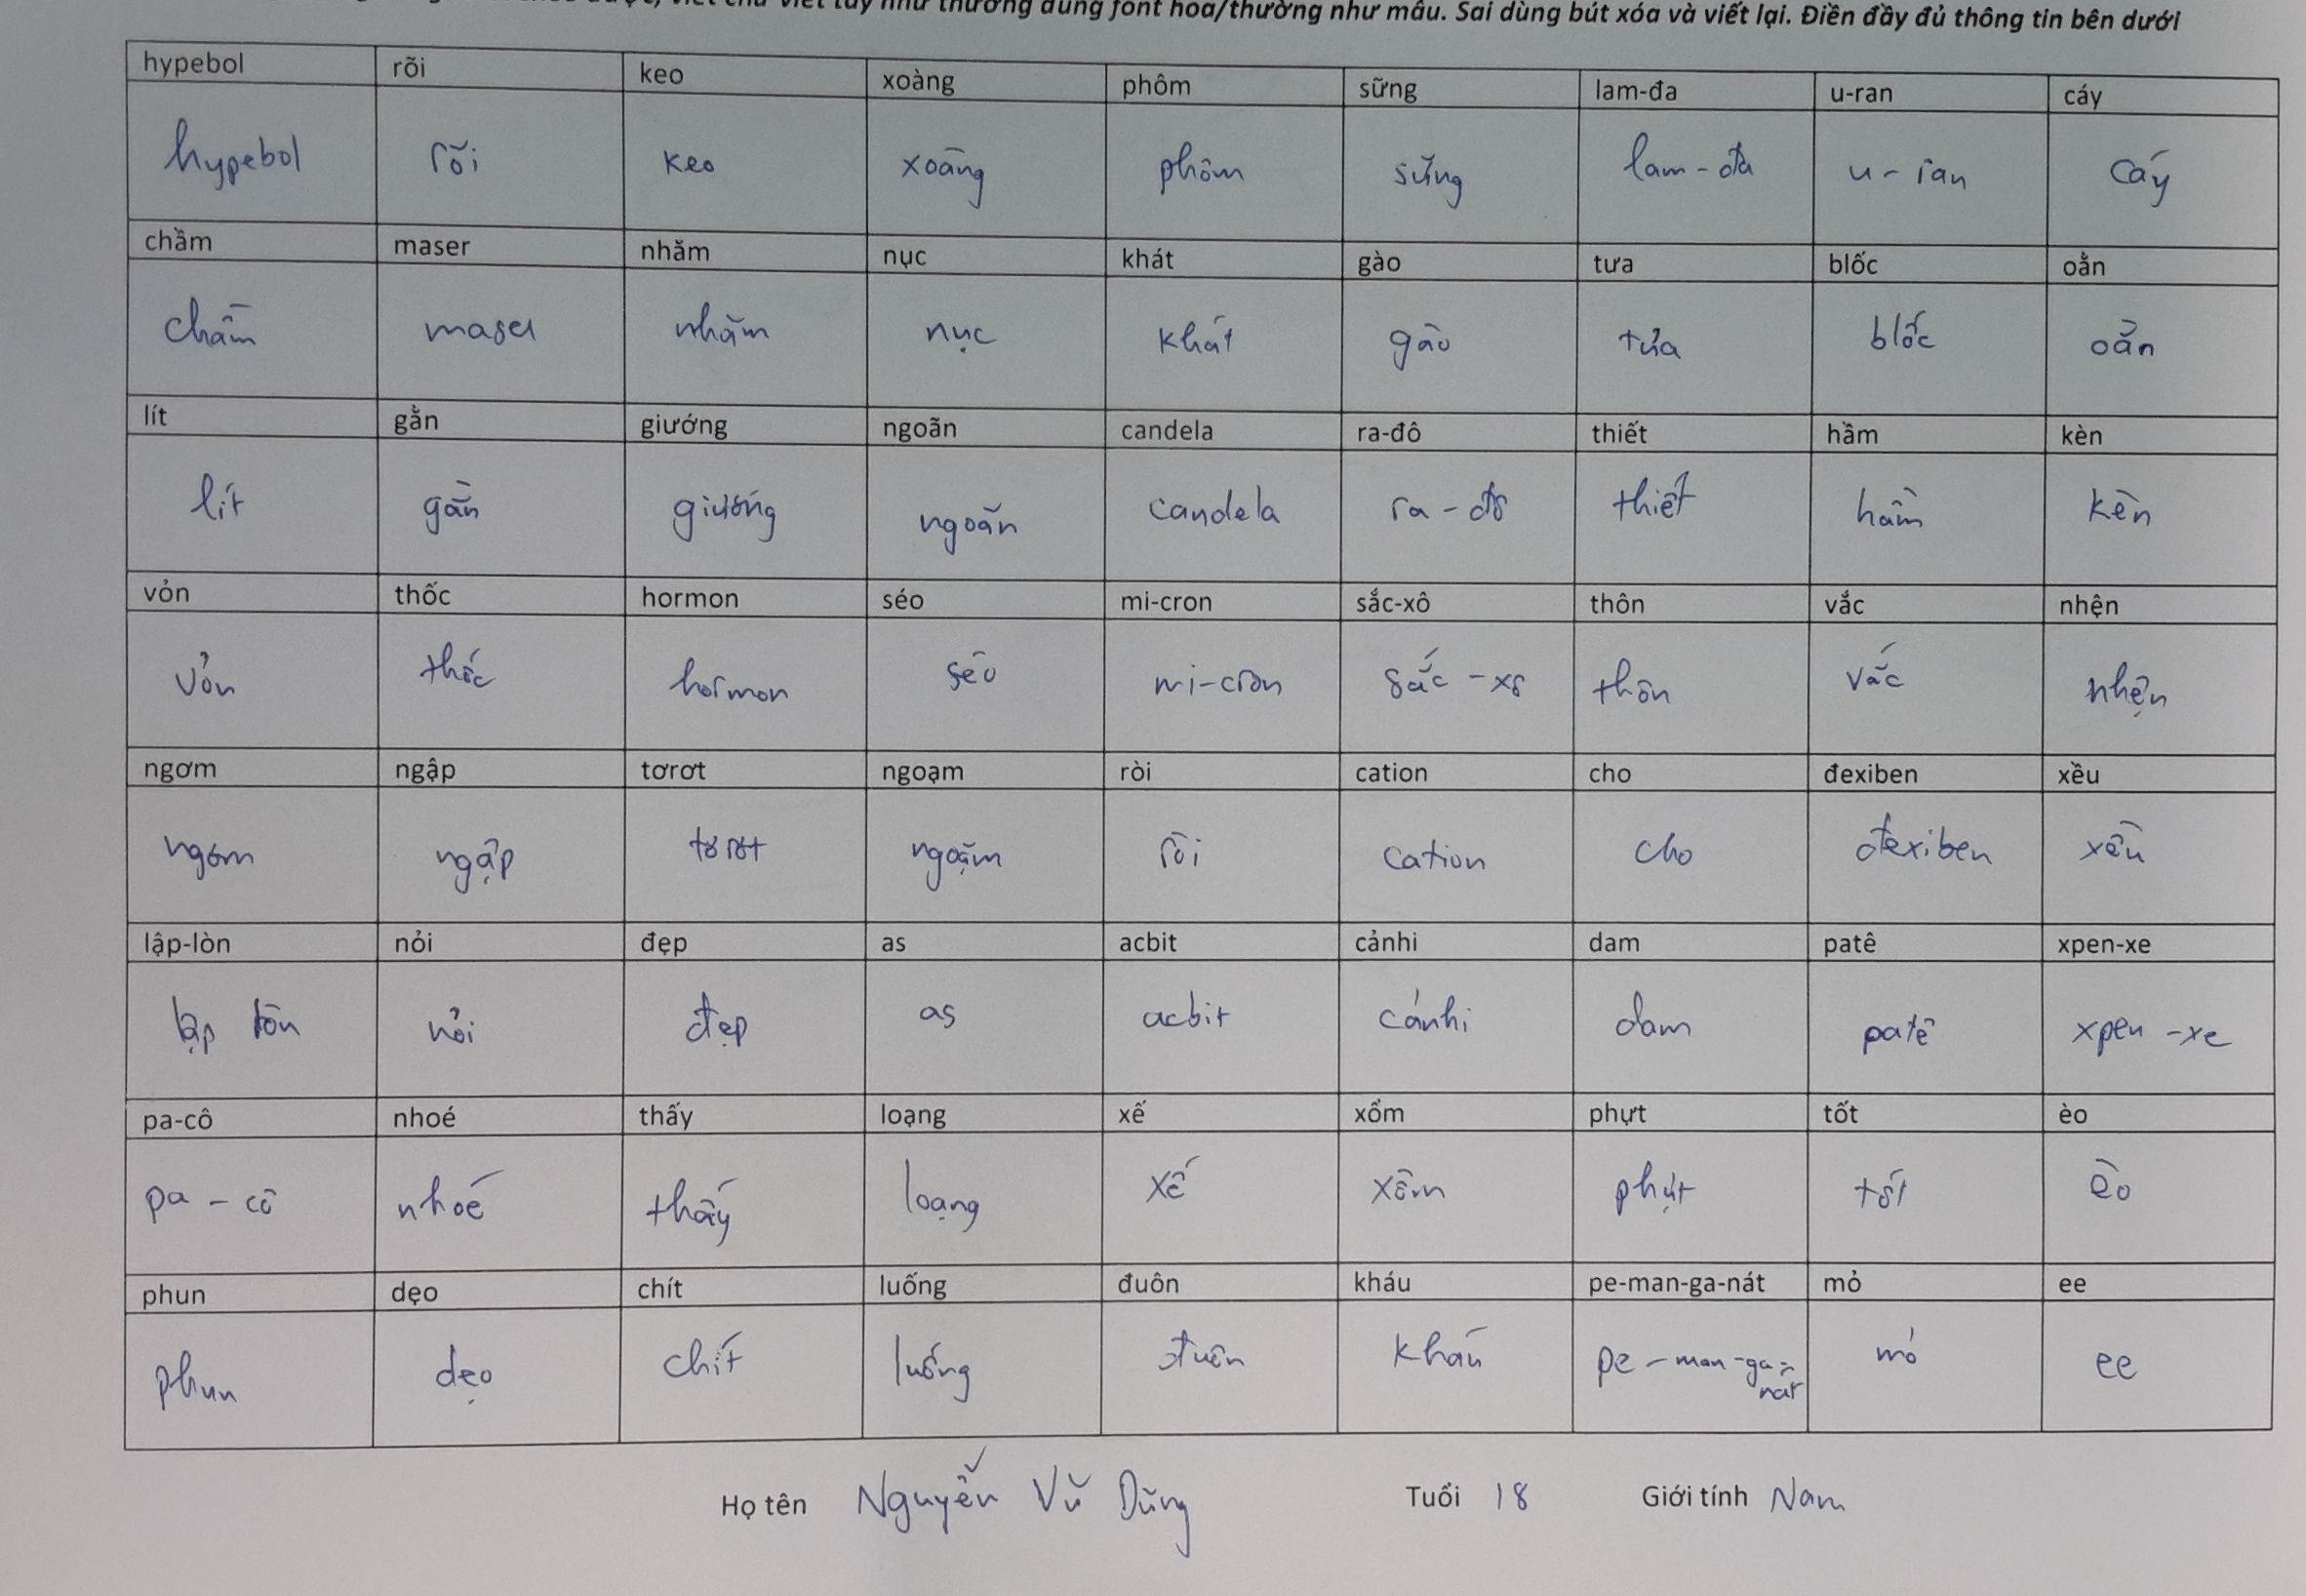 viết chữ viết tay như thường dùng font hoa/thường như mẫu. Sai dùng bút xóa và viết lại. Điền đầy đủ thông tin bên dưới
hypebol rõi keo xoàng phôm sững lam-đa u-ran cáy
hypebol rõi keo xoàng phôm sững lam-đa u-ran cáy
chầm maser nhăm nục khát gào tưa blốc oằn
chầm maser nhăm nục khát gào tưa blốc oằn
lít gằn giướng ngoãn candela ra-đô thiết hầm kèn
lít gằn giướng ngoãn candela ra-đô thiết hầm kèn
vỏn thốc hormon séo mi-cron sắc-xô thôn vắc nhện
vỏn thốc hormon séo mi-cron sắc-xô thôn vắc nhện
ngơm ngập tơrơt ngoạm ròi cation cho đexiben xều
ngơm ngập tơrơt ngoạm ròi cation cho đexiben xều
lập-lòn nỏi đẹp as acbit cảnhi dam patê xpen-xe
lập lòn nỏi đẹp as acbit cảnhi dam patê xpen-xe
pa-cô nhoé thấy loạng xế xổm phựt tốt èo
pa-cô nhoé thấy loạng xế xổm phựt tốt èo
phun dẹo chít luống đuôn kháu pe-man-ga-nát mỏ ee
phun dẹo chít luống đuôn kháu pe-man-ga-nát mỏ ee
Họ tên Nguyễn Vũ Dũng Tuổi 18 Giới tính Nam